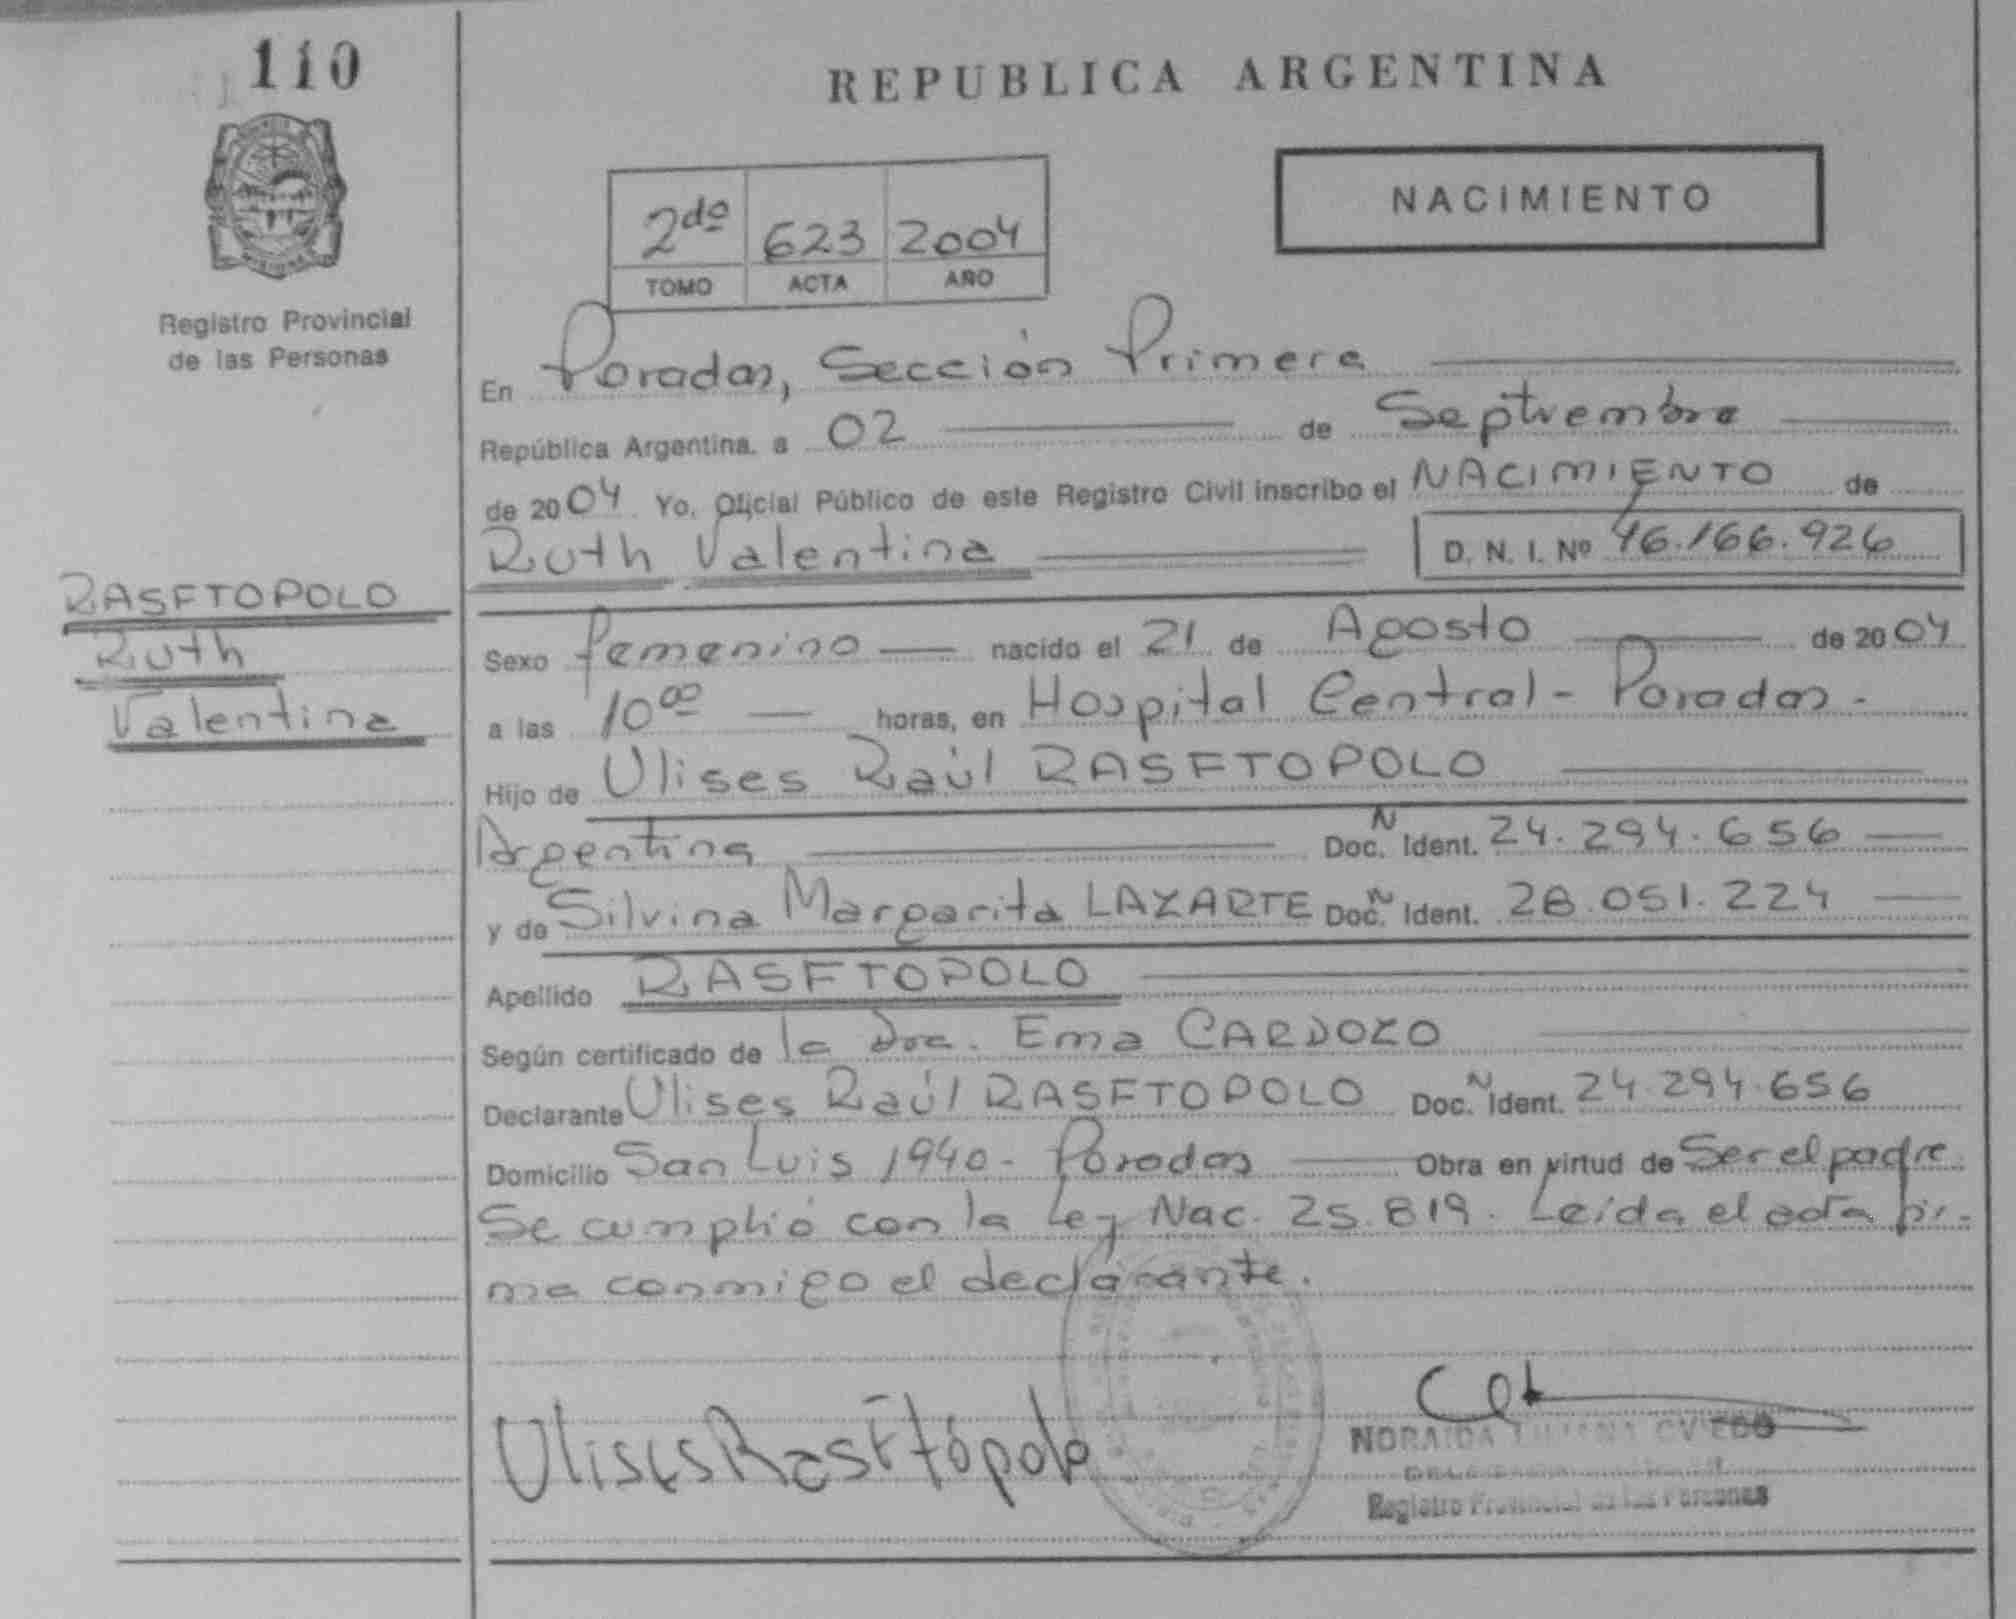 110
REPUBLICA ARGENTINA
NACIMIENTO
2do 623 2004
TOMO ACTA AÑO
Registro Provincial
de las Personas
En Posadas, Sección Primera
República Argentina, a 02 de Septiembre
de 2004 Yo, Oficial Público de este Registro Civil inscribo el NACIMIENTO de
Ruth Valentina D. N. I. Nº 46.166.926
RASFTOPOLO
Ruth
Valentina
Sexo femenino nacido el 21 de Agosto de 2004
a las 10 00 horas, en Hospital Central - Posadas.
Hijo de Ulises Raúl RASFTOPOLO
Argentina Doc. N Ident. 24.294.656
y de Silvina Margarita LAZARTE Doc. N Ident. 28.051.224
Apellido RASFTOPOLO
Según certificado de la Dra. Ema CARDOZO
Declarante Ulises Raúl RASFTOPOLO Doc. N Ident. 24.294.656
Domicilio San Luis 1940 - Posadas Obra en virtud de Ser el padre
Se cumplió con la Ley Nac. 25.819. Leída el acta fir-
ma conmigo el declarante.
Ulises Rasftópolo
NORAIDA LILIANA OVIEDO
Registro Provincial de las Personas